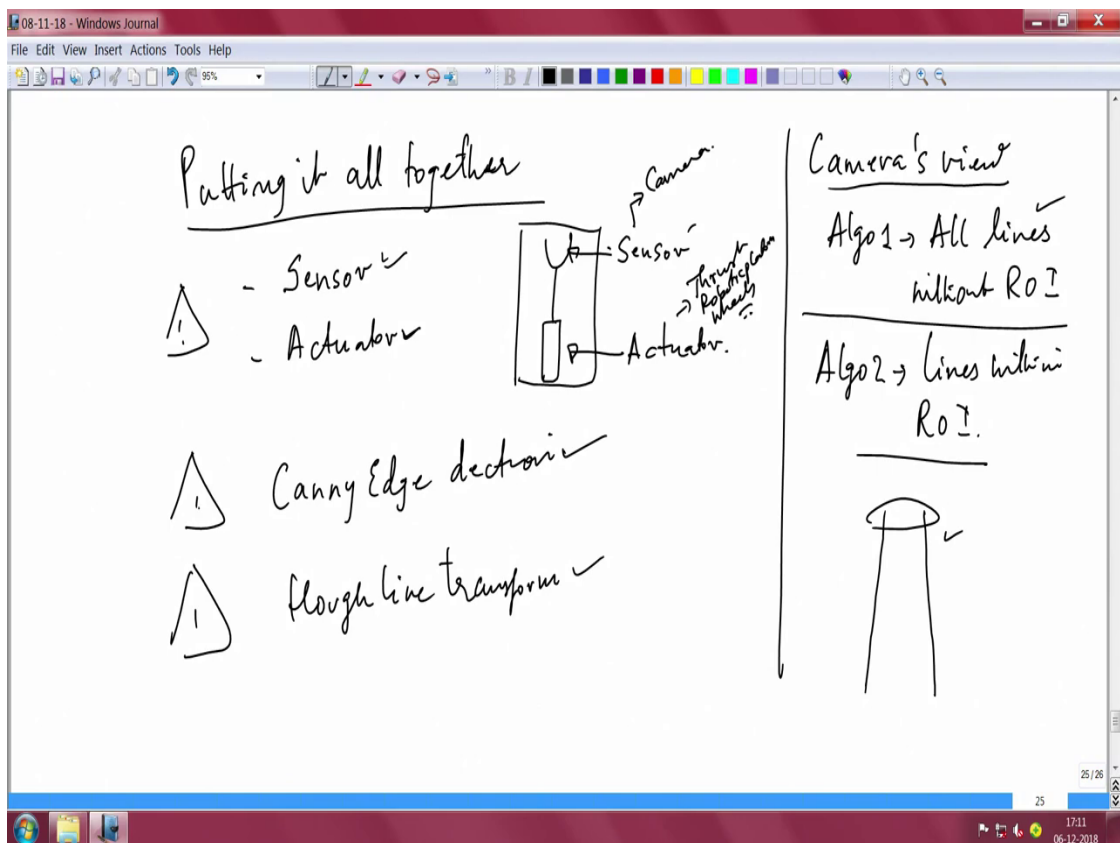 08-11-18 - Windows Journal
File Edit View Insert Actions Tools Help
95%
B I
Putting it all together
- Sensor
- Actuator
Camera.
Sensor
Thrust
Robotic
Wheels
Actuator.
!
Canny Edge dectroni
!
Hough line transform
!
Camera's view
Algo1 → All lines
without ROI
Algo2 → lines within
ROI.
25 / 26
25
17:11
06-12-2018